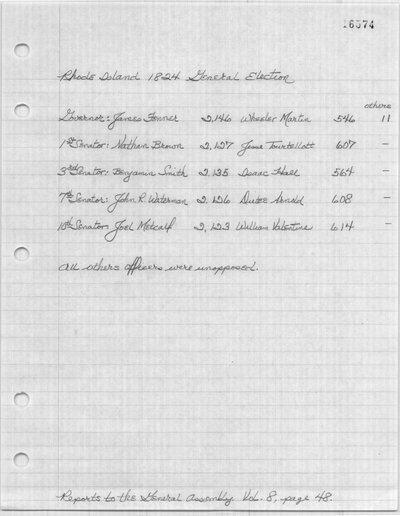 16574
Rhode Island 1824 General Election
others
Governor: James Fenner 2,146 Wheeler Martin 546 11
1st Senator: Nathan Brown 2,127 Jesse Tourtellott 607 -
3rd Senator: Benjamin Smith 2,135 Isaac Hall 564 -
7th Senator: John R. Waterman 2,126 Dutee Arnold 608 -
10th Senator: Joel Metcalf 2,123 William Valentine 614 -
All others officers were unopposed.
Reports to the General Assembly Vol. 8, page 48.